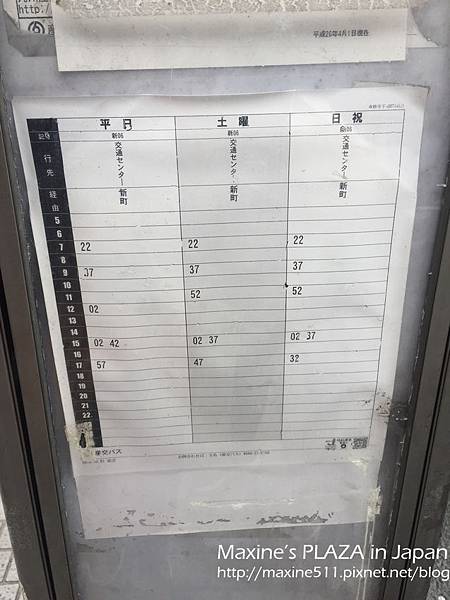 http:/
平成26年4月1日現在
平日 土曜 日祝
記号 新06 新06 新06
行先 交通センター 交通センター 交通センター
経由 新町 新町 新町
5
6
7 22 22 22
8
9 37 37 37
10
11 52 52
12 02
13
14
15 02 42 02 37 02 37
16
17 57 47 32
18
19
20
21
22
産交バス
Maxine's PLAZA in Japan
http://maxine511.pixnet.net/blog